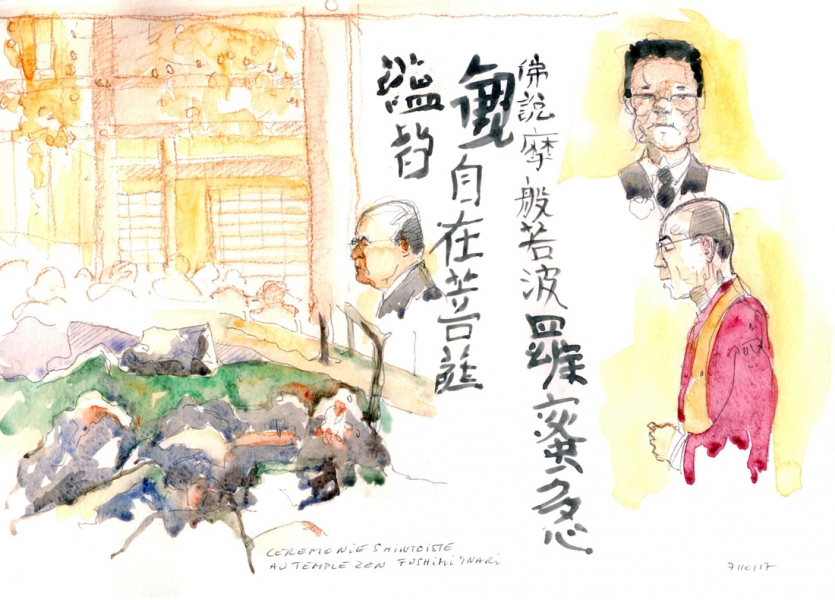 佛説摩般若波羅蜜多心
觀自在菩薩
皆
CEREMONIE SHINTOISTE
AU TEMPLE ZEN FUSHIMI INARI
7/10/17